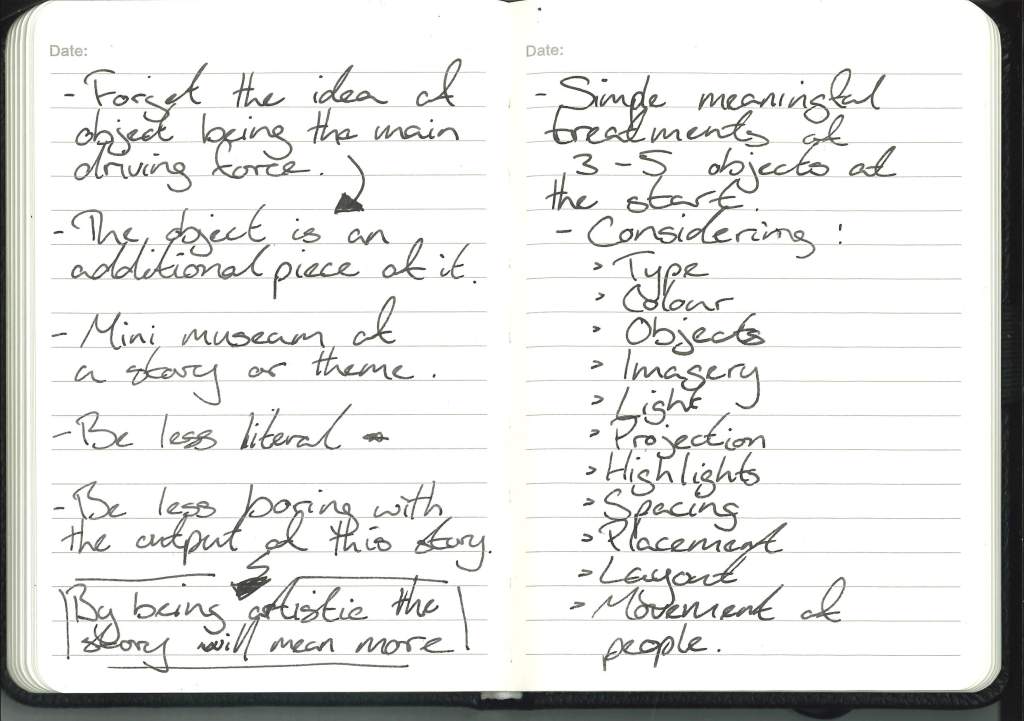 Date:
- Forget the idea of
object being the main
driving force.
- The object is an
additional piece of it.
- Mini museum of
a story or theme.
- Be less literal
- Be less boring with
the output of this story.
By being artistic the
story will mean more
Date:
- Simple meaningful
treatments of
3 - 5 objects at
the start.
- Considering :
> Type
> Colour
> Objects
> Imagery
> Light
> Projection
> Highlights
> Spacing
> Placement
> Layout
> Movement of
people.